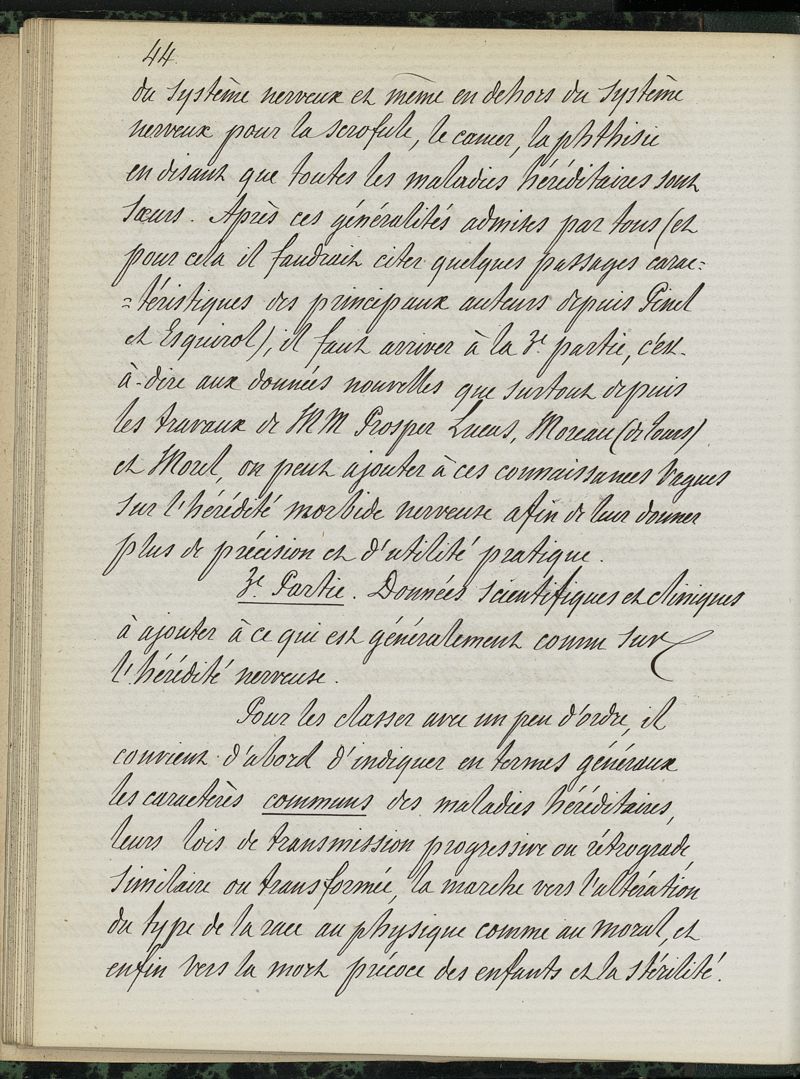 44
du système nerveux et même en dehors du système
nerveux pour la scrofule, le cancer, la phthisie
en disant que toutes les maladies héréditaires sont
sœurs. Après ces généralités admises par tous (et
pour cela il faudrait citer quelques passages carac=
=téristiques des principaux auteurs depuis Pinel
et Esquirol), il faut arriver à la 3e partie, c'est-
à-dire aux données nouvelles que surtout depuis
les travaux de MM Prosper Lucas, Moreau (de Tours)
et Morel, on peut ajouter à ces connaissances vagues
sur l'hérédité morbide nerveuse afin de leur donner
plus de précision et d'utilité pratique.
3e Partie. Données scientifiques et cliniques
à ajouter à ce qui est généralement connu sur
l'hérédité nerveuse.
Pour les classer avec un peu d'ordre, il
convient d'abord d'indiquer en termes généraux
les caractères communs des maladies héréditaires,
leurs lois de transmission progressive ou rétrograde,
similaire ou transformée, la marche vers l'altération
du type de la race au physique comme au moral, et
enfin vers la mort précoce des enfants et la stérilité.